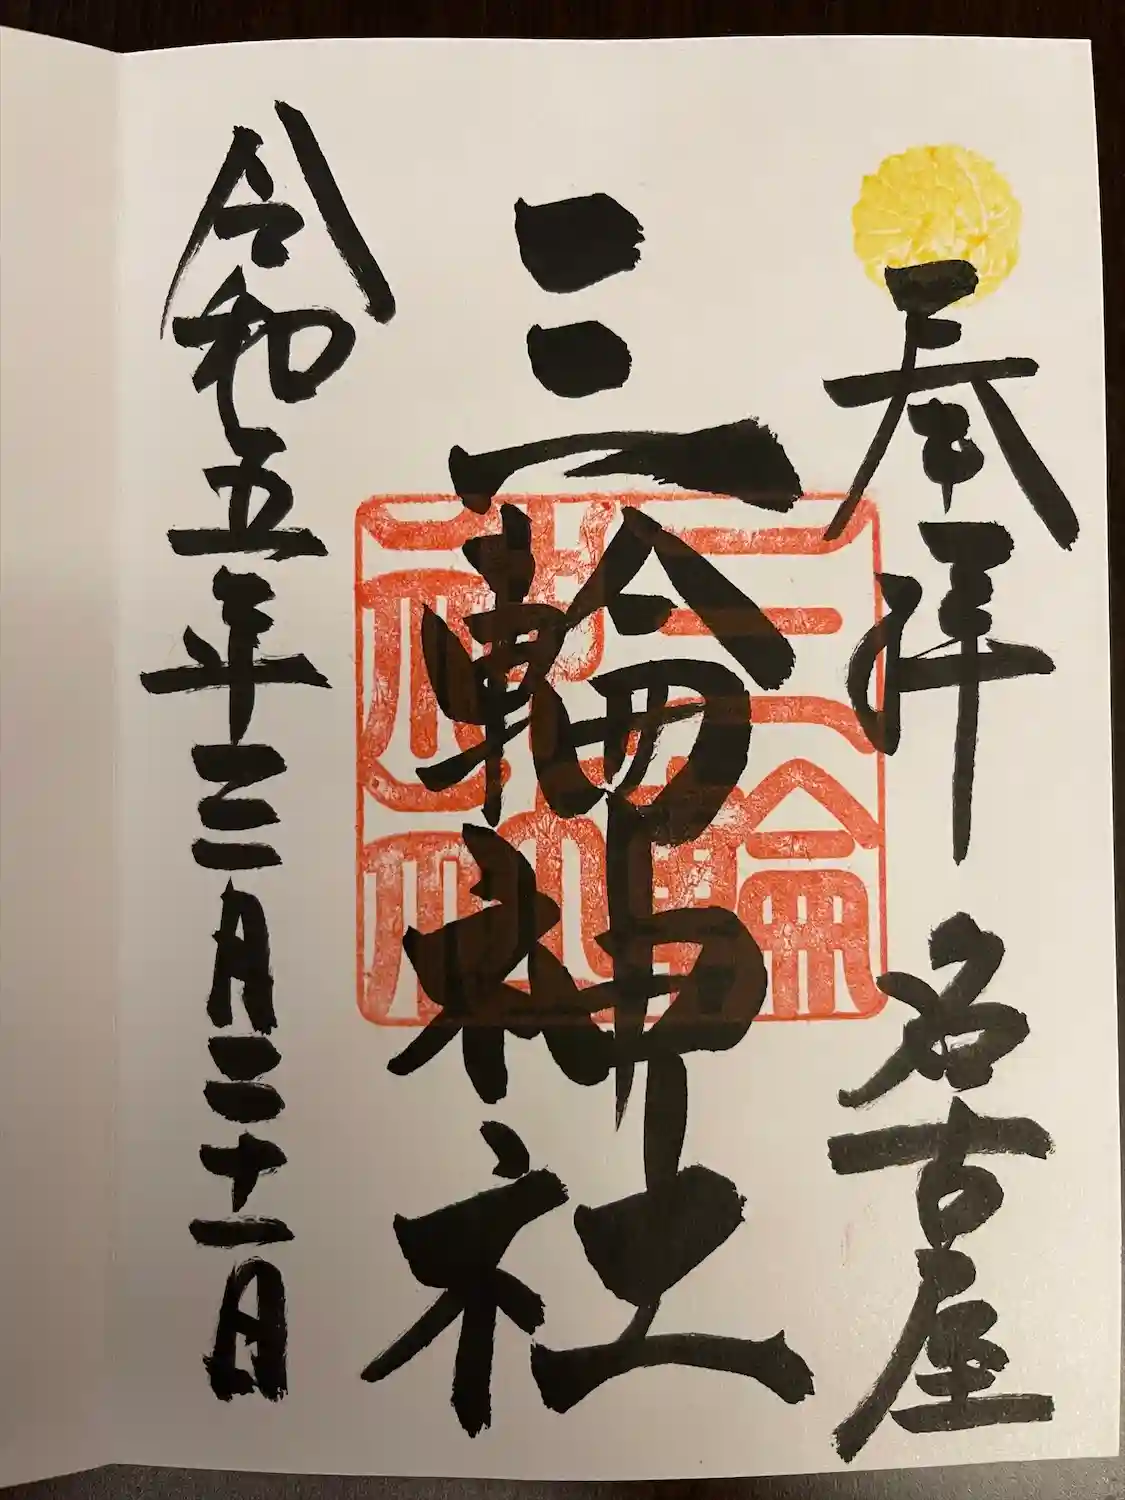 奉拝 名古屋
三輪神社
令和五年三月二十一日
三輪
神社